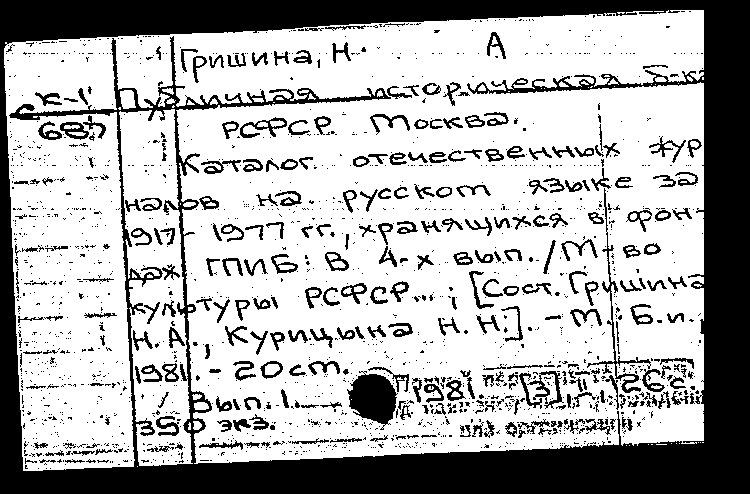 Гришина, Н. А
К-1
687
Публичная историческая б-ка
РСФСР. Москва.
Каталог отечественных жур
налов на русском языке за
1917 - 1977 гг., хранящихся в фон-
дах ГПИБ: В 4-х вып. / М-во
культуры РСФСР...; [Сост. Гришина
Н. А., Курицына Н. Н.]. - М.: Б. и.,
1981. - 20 см.
Вып. 1. 1981. [3], II, 126 с.
350 экз.
организации